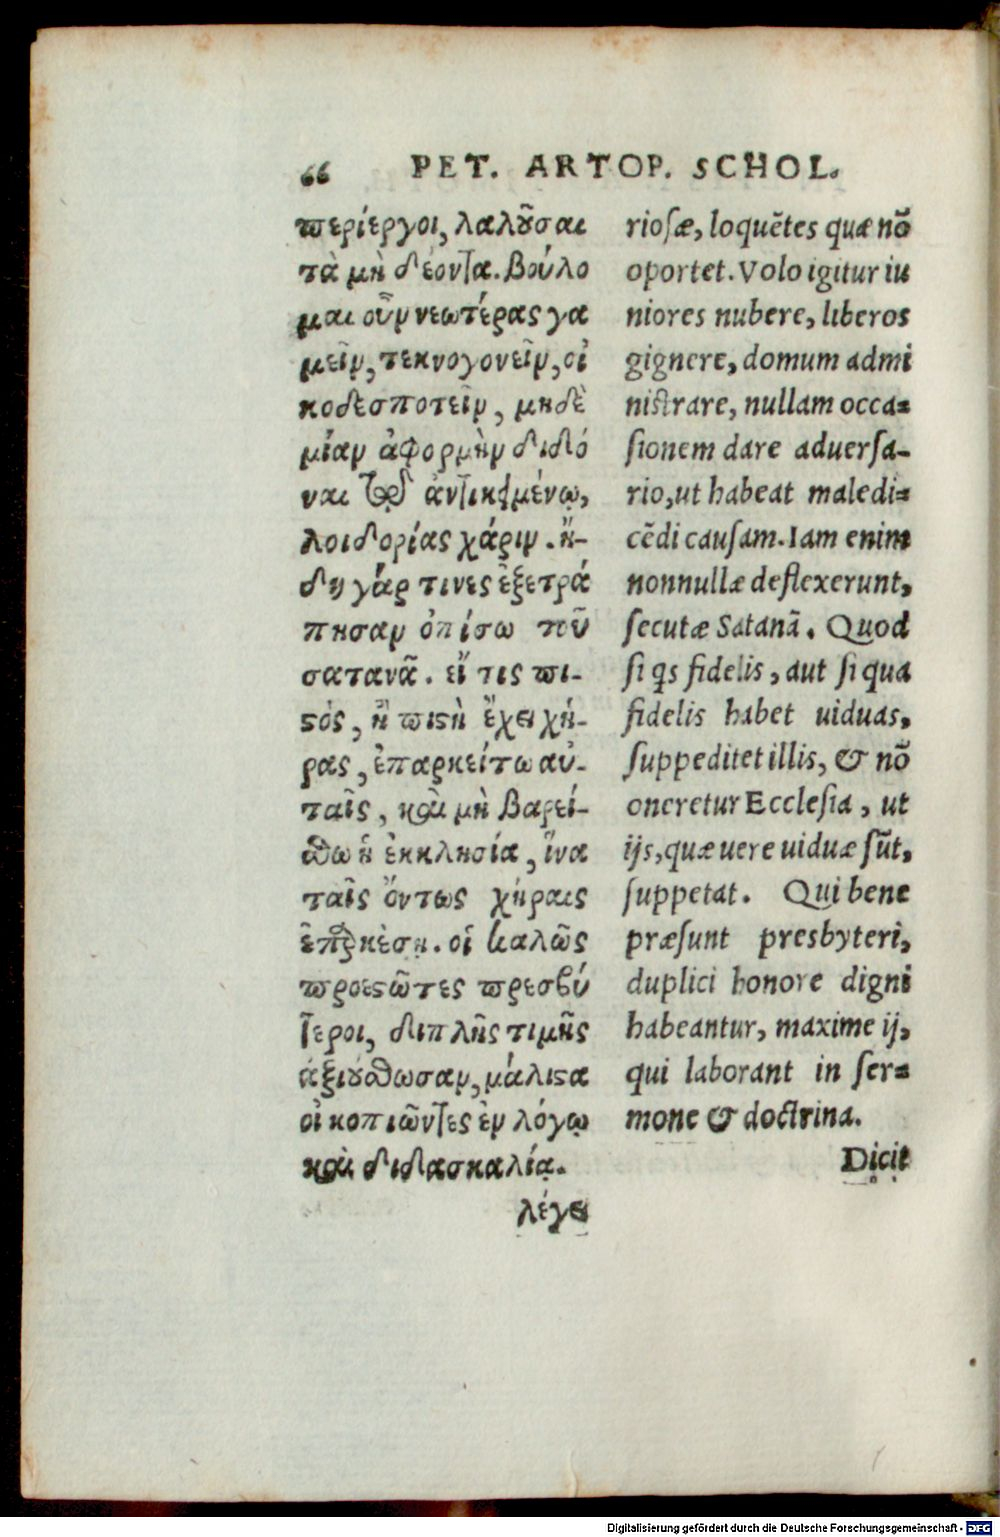 66 PET. ARTOP. SCHOL.
περίεργοι, λαλοῦσαι
τὰ μὴ δέοντα. βούλο
μαι οὖν νεωτέρας γα
μεῖν, τεκνογονεῖν, οἰ
κοδεσποτεῖν, μηδὲ
μίαν ἀφορμὴν διδό
ναι τῷ ἀντικειμένῳ,
λοιδορίας χάριν. ἤ-
δη γάρ τινες ἐξετρά
πησαν ὀπίσω τοῦ
σατανᾶ. εἴ τις πι-
ϛός, ἢ πιϛὴ ἔχει χή-
ρας, ἐπαρκείτω αὐ-
ταῖς, καὶ μὴ βαρεί-
σθω ἡ ἐκκλησία, ἵνα
ταῖς ὄντως χήραις
ἐπαρκέσῃ. οἱ καλῶς
προεϛῶτες πρεσβύ
τεροι, διπλῆς τιμῆς
ἀξιούσθωσαν, μάλιϛα
οἱ κοπιῶντες ἐν λόγῳ
καὶ διδασκαλίᾳ.
λέγει
rioſæ, loquẽtes quæ nõ
oportet. Volo igitur iu
niores nubere, liberos
gignere, domum admi
niſtrare, nullam occa-
ſionem dare aduerſa-
rio, ut habeat maledi-
cẽdi cauſam. Iam enim
nonnullæ deflexerunt,
ſecutæ Satanã. Quod
ſi qs fidelis, aut ſi qua
fidelis habet uiduas,
ſuppeditet illis, & nõ
oneretur Eccleſia, ut
ijs, quæ uere uiduæ ſũt,
ſuppetat. Qui bene
præſunt presbyteri,
duplici honore digni
habeantur, maxime ij,
qui laborant in ſer-
mone & doctrina.
Dicit
Digitalisierung gefördert durch die Deutsche Forschungsgemeinschaft - DFG